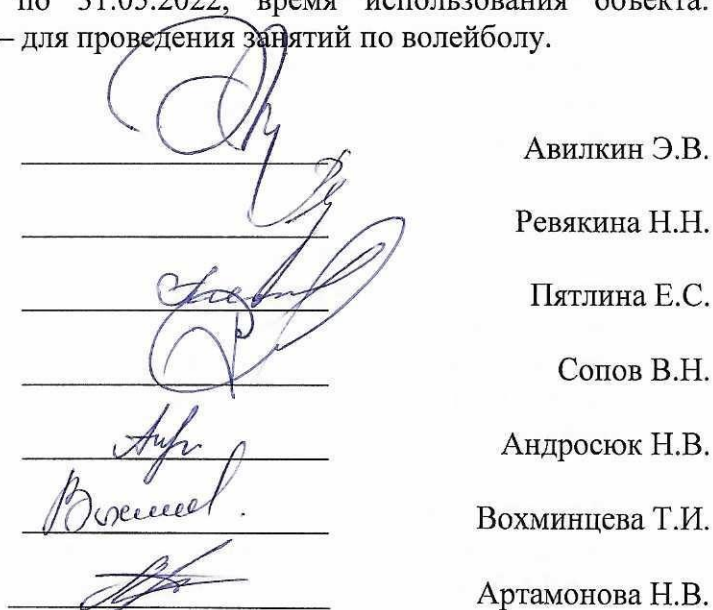 по 31.05.2022, время использования объекта:
– для проведения занятий по волейболу.
Авилкин Э.В.
Ревякина Н.Н.
Пятлина Е.С.
Сопов В.Н.
Андросюк Н.В.
Вохминцева Т.И.
Артамонова Н.В.